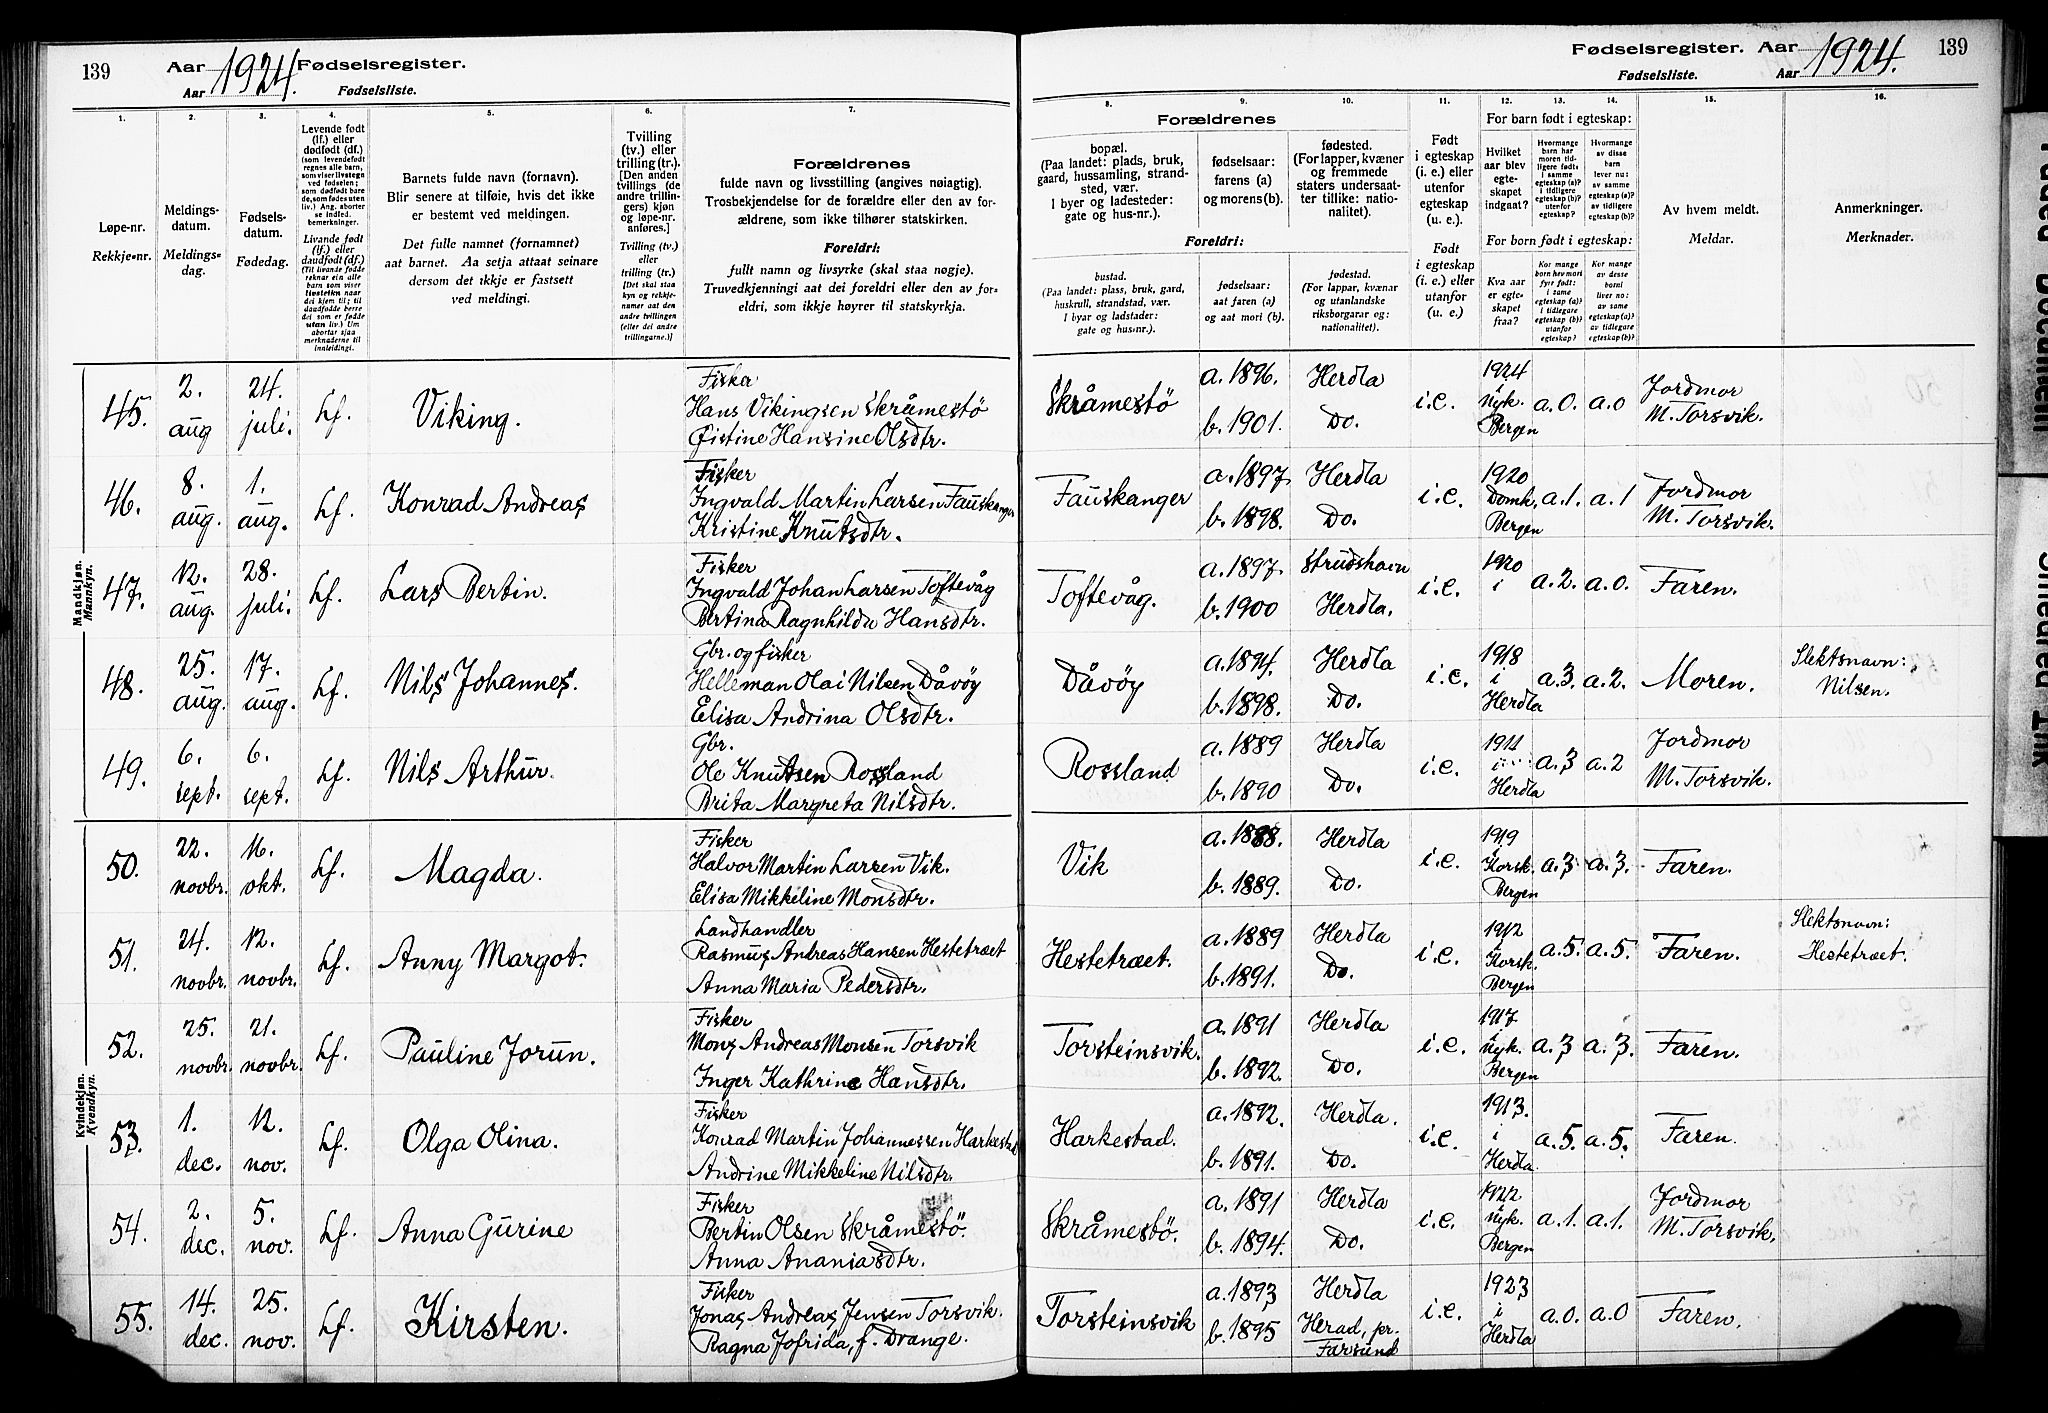 139
Aar 1924. Fødselsregister.
Aar Fødselsliste.
Fødselsregister. Aar 1924. 139
Fødselsliste. Aar
1. 2. 3. 4. 5. 6. 7.
Løpe-nr.
Rekkje-nr.
Meldings-
datum.
Meldings-
dag.
Fødsels-
datum.
Fødedag.
Levende født
(lf.) eller
dødfødt (df.)
Livande født
(lf.) eller
daudfødt (df.)
Barnets fulde navn (fornavn).
Blir senere at tilføie, hvis det ikke
er bestemt ved meldingen.
Det fulle namnet (fornamnet)
aat barnet. Aa setja attaat seinare
dersom det ikkje er fastsett
ved meldingi.
Tvilling
(tv.) eller
trilling (tr.).
[Den anden
tvillings (de
andre trillin-
gers) kjøn
og løpe-nr.
anføres.]
Tvilling (tv.)
eller
trilling (tr.)
[Det skal staa
kyn og rekkje-
numer aat den
andre tvillingen
(eller dei andre
trillingarne.)]
Forældrenes
fulde navn og livsstilling (angives nøiagtig).
Trosbekjendelse for de forældre eller den av for-
ældrene, som ikke tilhører statskirken.
Foreldri:
fullt namn og livsyrke (skal staa nøgje).
Truvedkjenningi aat dei foreldri eller den av for-
eldri, som ikkje høyrer til statskyrkja.
8. 9. 10. 11. 12. 13. 14. 15. 16.
Forældrenes
bopæl.
(Paa landet: plads, bruk,
gaard, hussamling, strand-
sted, vær.
I byer og ladesteder:
gate og hus-nr.).
fødselsaar:
farens (a)
og morens (b).
fødested.
(For lapper, kvæner
og fremmede
staters undersaat-
ter tillike: natio-
nalitet).
Foreldri:
bustad.
(Paa landet: plass, bruk, gard,
huskrull, strandstad, vær.
I byar og ladstader:
gate og hus-nr.).
fødselsaar:
aat faren (a)
og aat mori (b).
fødestad.
(For lappar, kvænar
og utanlandske
riksborgarar og:
nationalitet).
Født
i egteskap
(i. e.) eller
utenfor
egteskap
(u. e.)
Født
i egteskap
(i. e.) eller
utanfor
(u. e.)
For barn født i egteskap:
Hvilket
aar blev
egte-
skapet
indgaat?
For born født i egteskap:
Kva aar
er egte-
skapet
fraa?
Av hvem meldt.
Meldar.
Anmerkninger.
Merknader.
Mandkjøn.
Mannkyn.
45. 2. aug 24. juli. Lf. Viking. Fisker
Hans Vikingsen Skråmestö
Øistine Hansine Olsdtr.
Skråmestö a. 1896. b. 1901. Herdla Do. i.e. 1924 Nyk. Bergen a.0. a.0 Jordmor M. Torsvik.
46. 8. aug. 1. aug. Lf. Konrad Andreas Fisker
Ingvald Martin Larsen Fauskanger
Kristine Knutsdtr.
Fauskanger a. 1897 b. 1898. Herdla Do. i.e. 1920 Domk. Bergen a.1. a.1 Jordmor M. Torsvik.
47. 12. aug. 28. juli. Lf. Lars Bertin. Fisker
Ingvald Johan Larsen Toftevåg
Bertina Ragnhilda Hansdtr.
Toftevåg. a. 1897. b. 1900 Strudshavn Herdla. i.e. 1920 i a.2. a.0. Faren.
48. 25. aug. 17. aug. Lf. Nils Johannes. Gbr. og fisker
Helleman Olai Nilsen Dåvöy
Elisa Andrina Olsdtr.
Dåvöy a. 1894. b. 1898. Herdla Do. i.e. 1918 i Herdla a.3. a.2. Moren. Slektsnavn: Nilsen.
49. 6. sept. 6. sept. Lf. Nils Arthur. Gbr.
Ole Knutsen Rossland
Brita Margreta Nilsdtr.
Rossland a. 1889 b. 1890 Herdla Do. i.e. 1911 i Herdla a.3 a.2 Jordmor M. Torsvik.
Kvindekjøn.
Kvendkyn.
50. 22. novbr. 16. okt. Lf. Magda. Fisker
Halvor Martin Larsen Vik.
Elisa Mikkeline Monsdtr.
Vik a. 1888. b. 1889. Herdla Do. i.e. 1919 i Korsk. Bergen a.3. a.3. Faren.
51. 24. novbr. 12. novbr. Lf. Anny Margot. Landhandler
Rasmus Andreas Hansen Hestetræet
Anna Maria Pedersdtr.
Hestetræet. a. 1889 b. 1891. Herdla Do. i.e. 1912 i Korsk. Bergen a.5. a.5. Faren. Slektsnavn: Hestetræet.
52. 25. novbr. 21. novbr. Lf. Pauline Jorun. Fisker
Mons Andreas Monsen Torsvik
Inger Kathrine Hansdtr.
Torsteinsvik. a. 1891 b. 1892. Herdla Do. i.e. 1917 Nyk. Bergen a.3 a.3. Faren.
53. 1. dec. 12. nov. Lf. Olga Olina. Fisker
Konrad Martin Johannessen Harkestad
Andrine Mikkeline Nilsdtr.
Harkestad. a. 1892. b. 1891. Herdla. Do. i.e. 1913. i Herdla a.5. a.5. Faren.
54. 2. dec. 5. nov. Lf. Anna Gurine Fisker
Bertin Olsen Skråmestö.
Anna Ananiasdtr.
Skråmestö. a. 1891 b. 1894. Herdla Do. i.e. 1922 Nyk. Bergen a.1. a.1. Jordmor M. Torsvik.
55. 14. dec. 25. nov. Lf. Kirsten. Fisker
Jonas Andreas Jensen Torsvik.
Ragna Jofrida, f. Drange.
Torsteinsvik a. 1893 b. 1895 Herdla Herad, pr. Farsund i.e. 1923 i Herdla a.0. a.0 Faren.